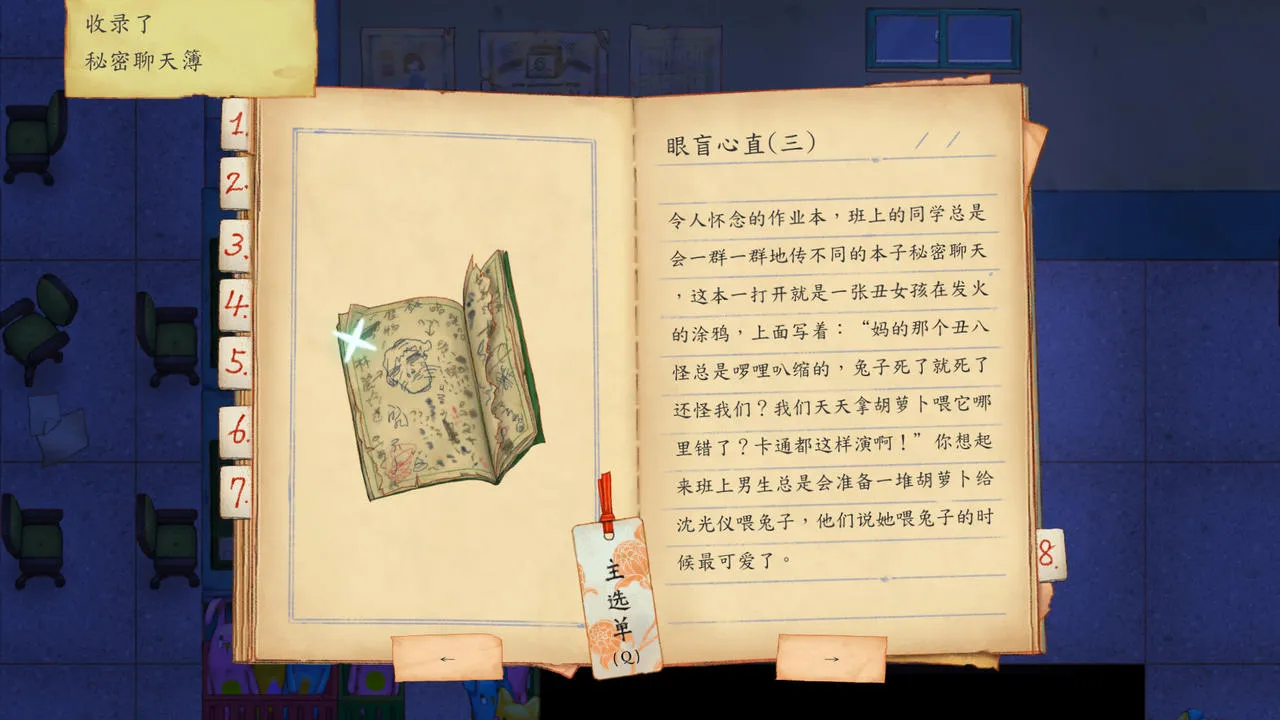 收录了
秘密聊天簿
1.
2.
3.
4.
5.
6.
7.
眼盲心直(三)
令人怀念的作业本，班上的同学总是
会一群一群地传不同的本子秘密聊天
，这本一打开就是一张丑女孩在发火
的涂鸦，上面写着：“妈的那个丑八
怪总是啰哩叭缩的，兔子死了就死了
还怪我们？我们天天拿胡萝卜喂它哪
里错了？卡通都这样演啊！”你想起
来班上男生总是会准备一堆胡萝卜给
沈光仪喂兔子，他们说她喂兔子的时
候最可爱了。
8.
主选单
(Q)
←
→